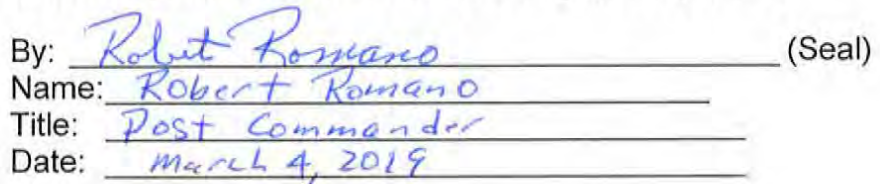 By: Robert Romano (Seal)
Name: Robert Romano
Title: Post Commander
Date: March 4, 2019